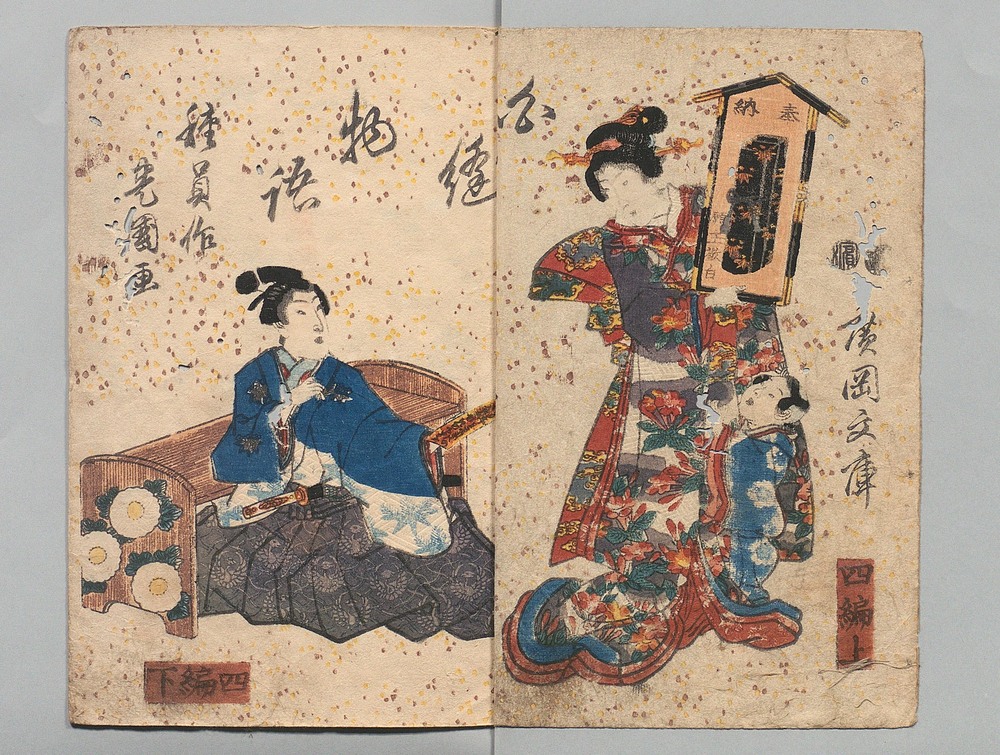 奉納
廣岡文庫
四編上
白縫物語
種員作
豊國画
四編下